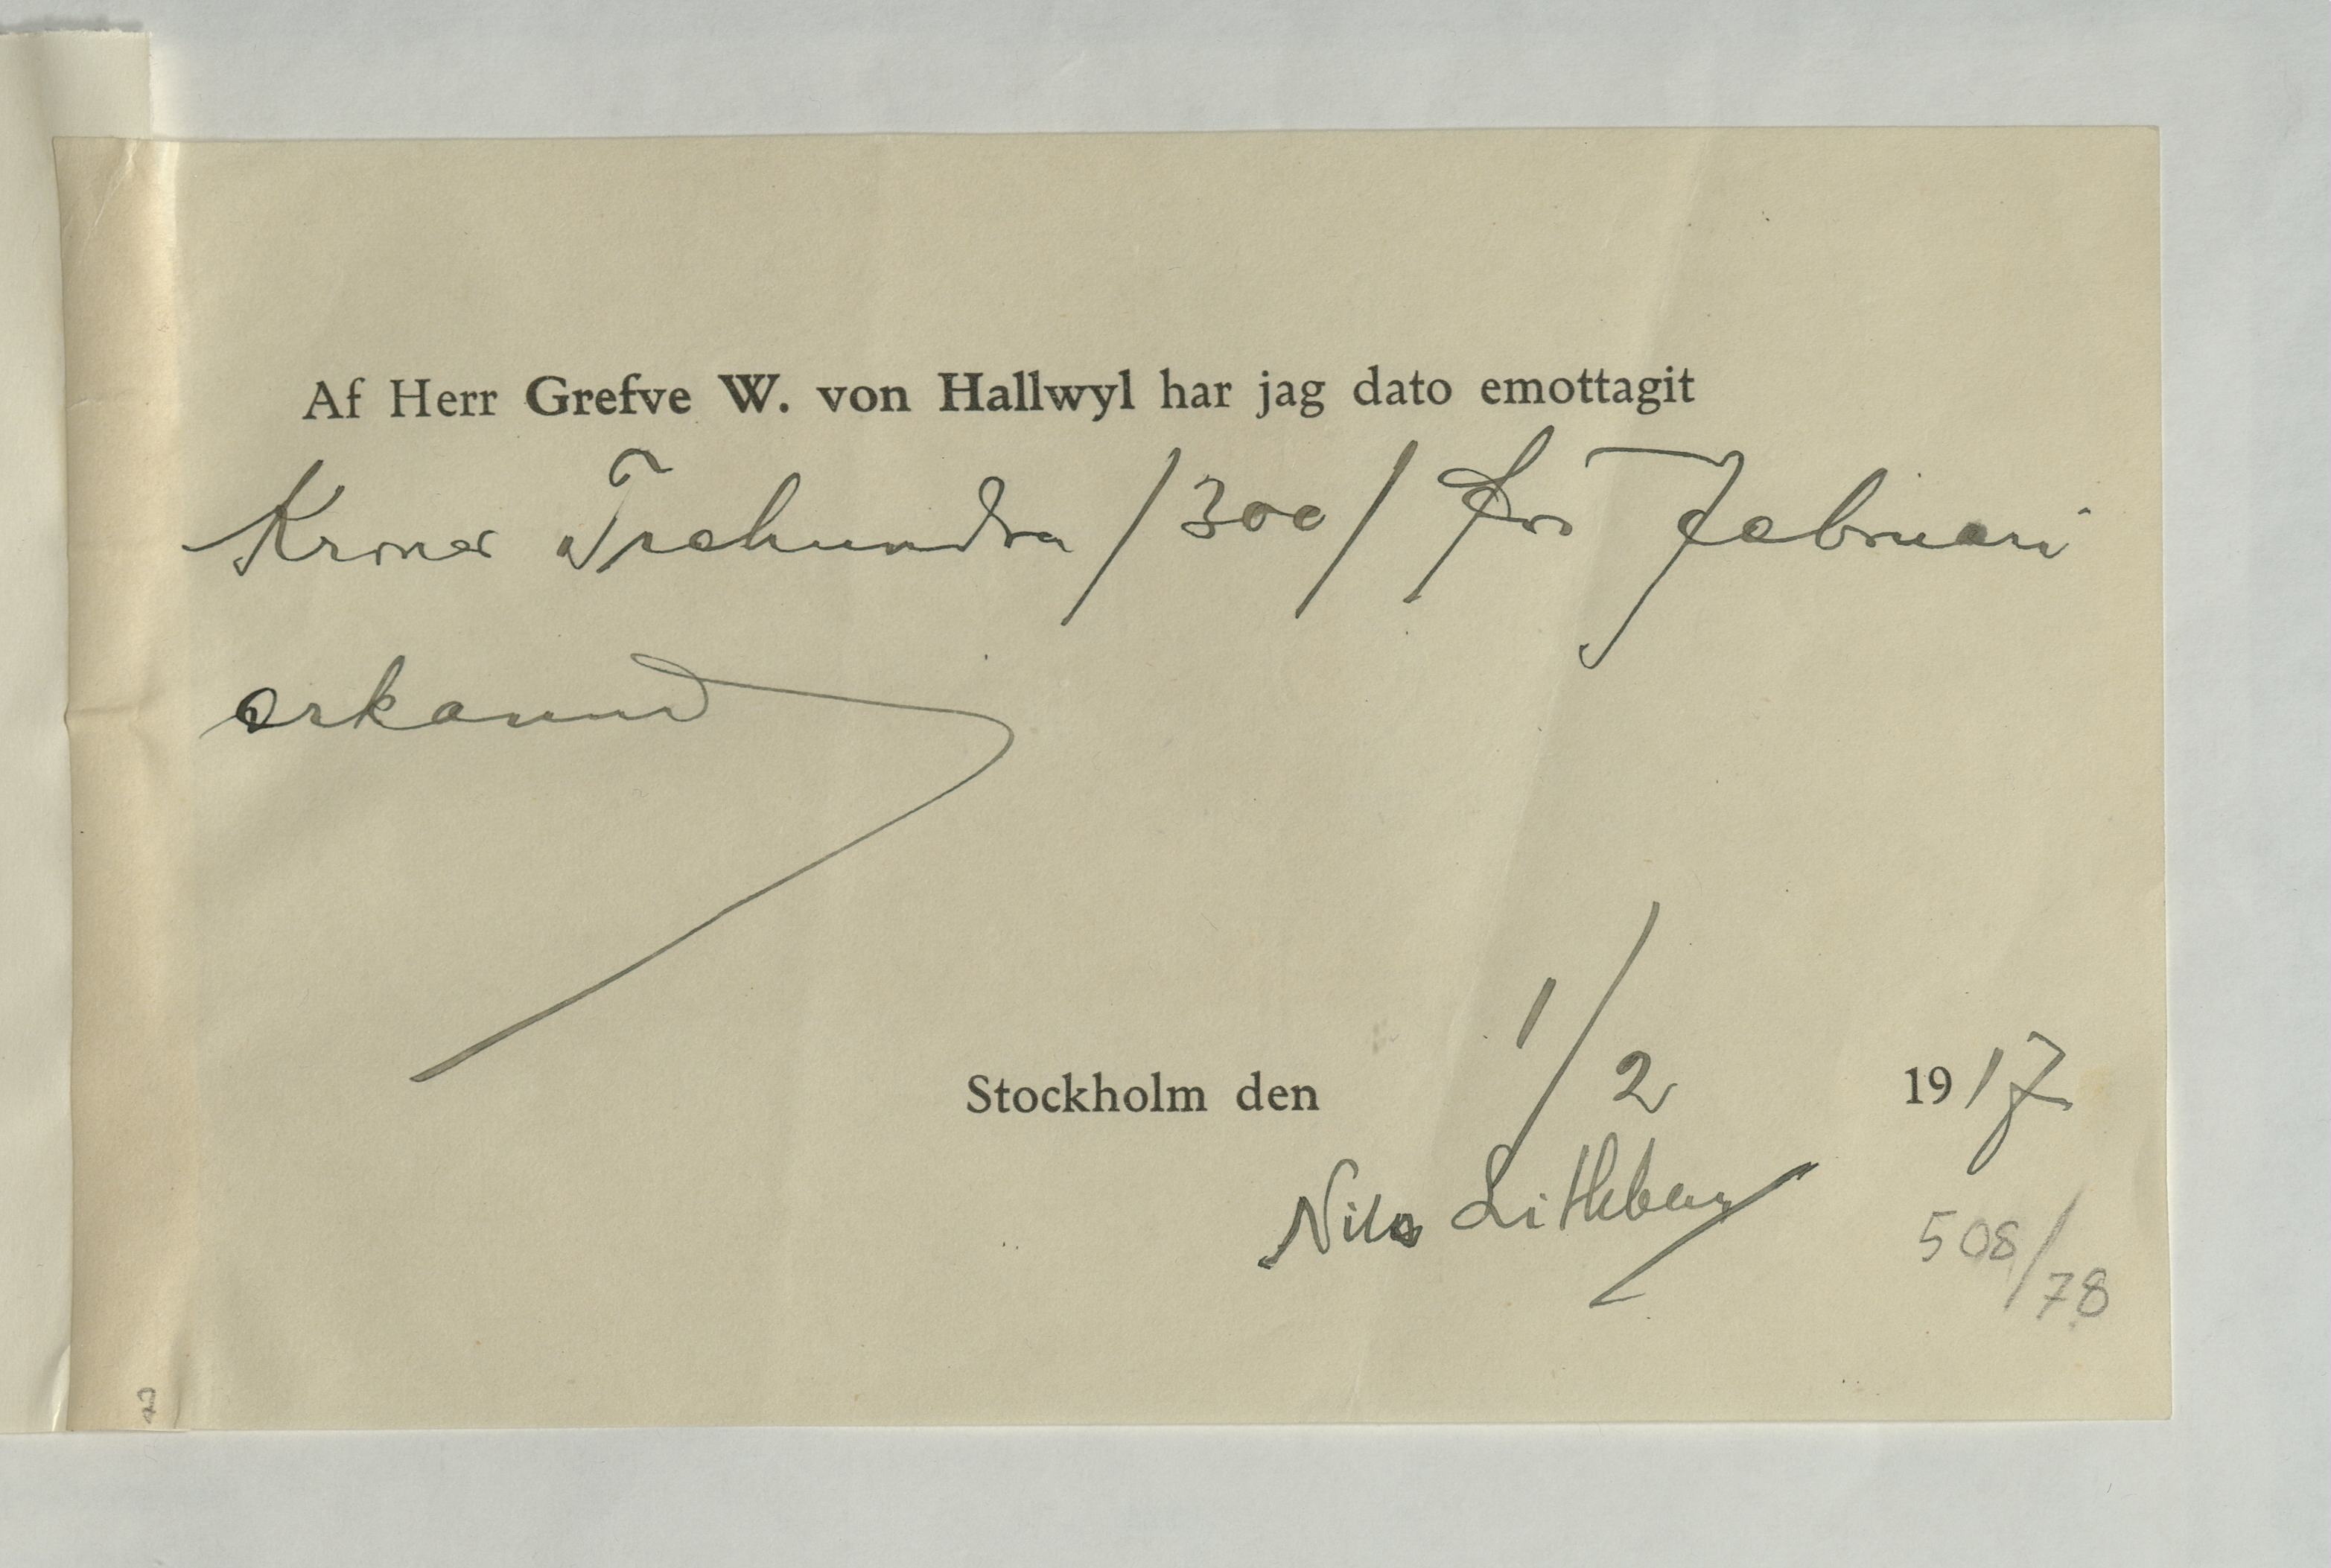 Af Herr Grefve W. von Hallwyl har jag dato emottagit
Kronor Trehundra /300/ för Februari
erkännes
Stockholm den 1/2 1917
Nils Lithberg
508/78
2